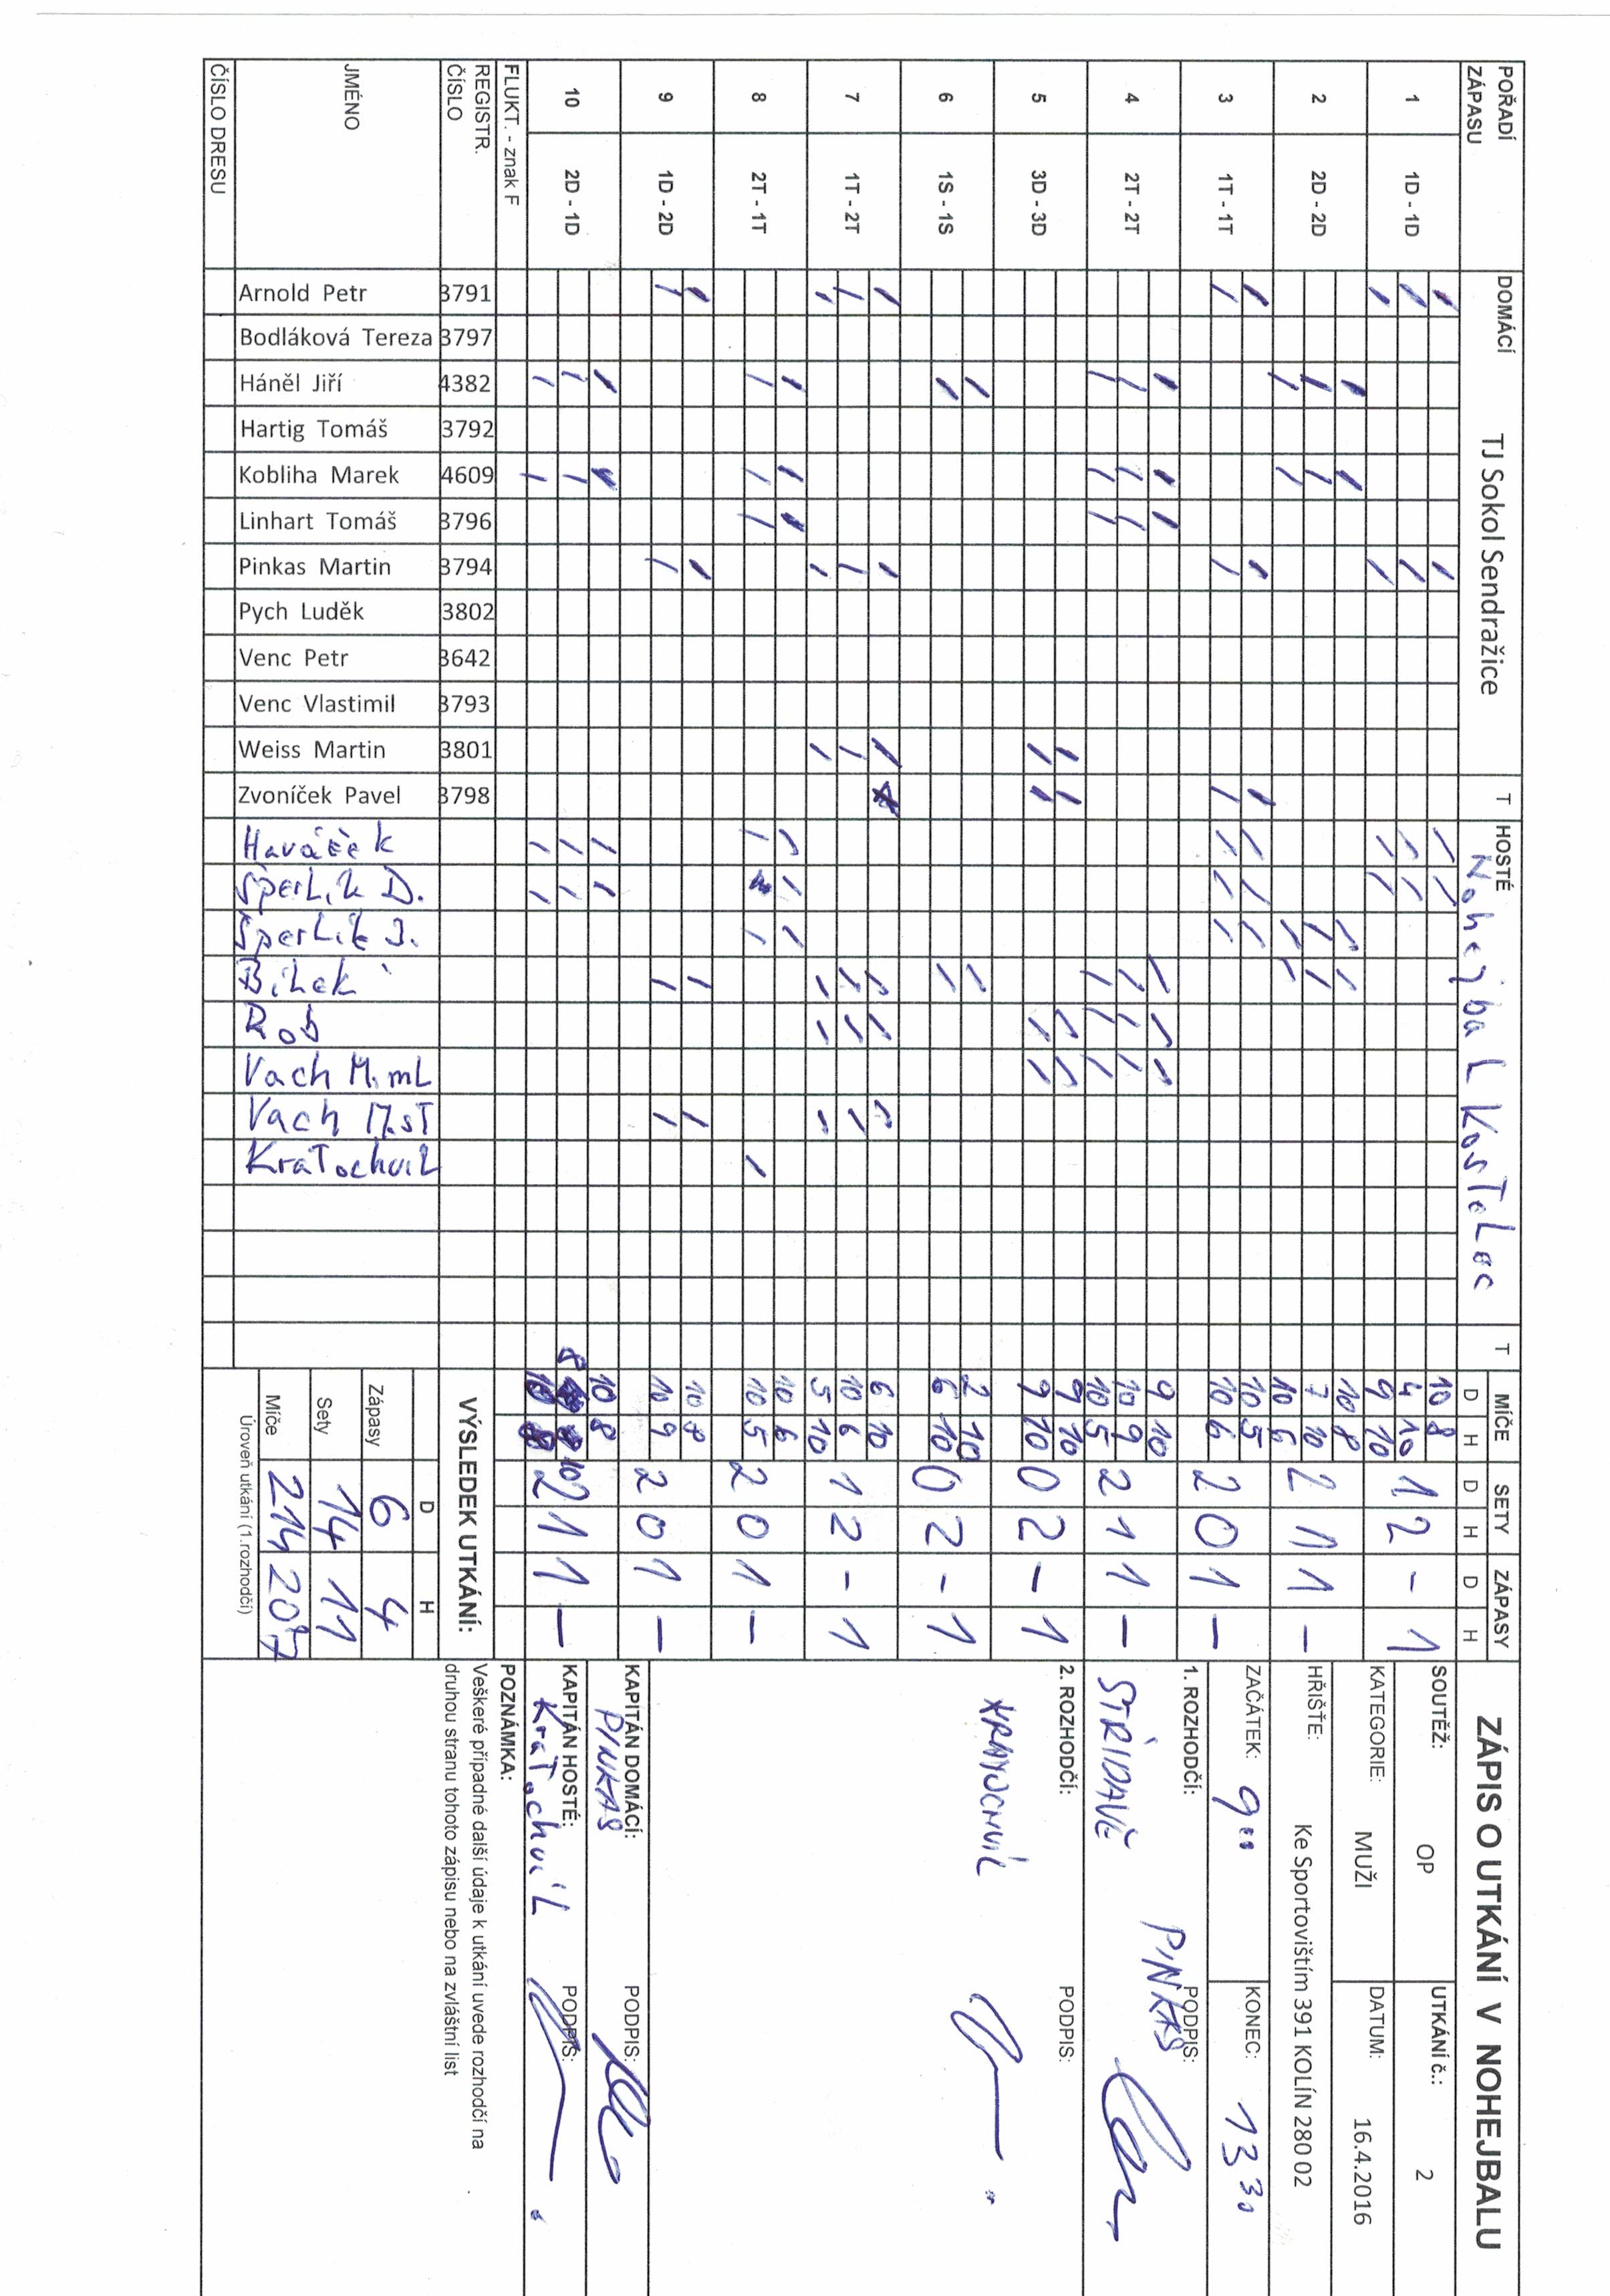 ZÁPIS O UTKÁNÍ V NOHEJBALU
SOUTĚŽ: OP UTKÁNÍ č.: 2
KATEGORIE: MUŽI DATUM: 16.4.2016
HŘIŠTĚ: Ke Sportovištím 391 KOLÍN 280 02
ZAČÁTEK: 9 00 KONEC: 13 30
1. ROZHODČÍ: PODPIS:
STŘÍDAVĚ PINKAS
2. ROZHODČÍ: PODPIS:
KRATOCHVIL
KAPITÁN DOMÁCÍ: PODPIS:
PINKAS
KAPITÁN HOSTÉ: PODPIS:
KraTochviL
POZNÁMKA:
Veškeré případné další údaje k utkání uvede rozhodčí na
druhou stranu tohoto zápisu nebo na zvláštní list
POŘADÍ ZÁPASU DOMÁCÍ TJ Sokol Sendražice T HOSTÉ NohejbaL KosTeLec T MÍČE SETY ZÁPASY
D H D H D H
1 1D - 1D 10 8 4 10 9 10 1 2 - 1
2 2D - 2D 10 8 7 10 10 6 2 1 1 -
3 1T - 1T 10 5 10 6 2 0 1 -
4 2T - 2T 9 10 10 9 10 5 2 1 1 -
5 3D - 3D 9 10 9 10 0 2 - 1
6 1S - 1S 2 10 6 10 0 2 - 1
7 1T - 2T 6 10 10 6 5 10 1 2 - 1
8 2T - 1T 10 6 10 5 2 0 1 -
9 1D - 2D 10 8 10 9 2 0 1 -
10 2D - 1D 10 8 8 10 10 8 2 1 1 -
FLUKT. - znak F
REGISTR. ČÍSLO
JMÉNO
ČÍSLO DRESU
Arnold Petr 3791
Bodláková Tereza 3797
Háněl Jiří 4382
Hartig Tomáš 3792
Kobliha Marek 4609
Linhart Tomáš 3796
Pinkas Martin 3794
Pych Luděk 3802
Venc Petr 3642
Venc Vlastimil 3793
Weiss Martin 3801
Zvoníček Pavel 3798
Haváček
ŠperLík D.
ŠperLík J.
Bílek
Rob
Vach M.mL
Vach M.sT
KraTochviL
VÝSLEDEK UTKÁNÍ:
D H
Zápasy 6 4
Sety 14 11
Míče 214 207
Úroveň utkání (1.rozhodčí)